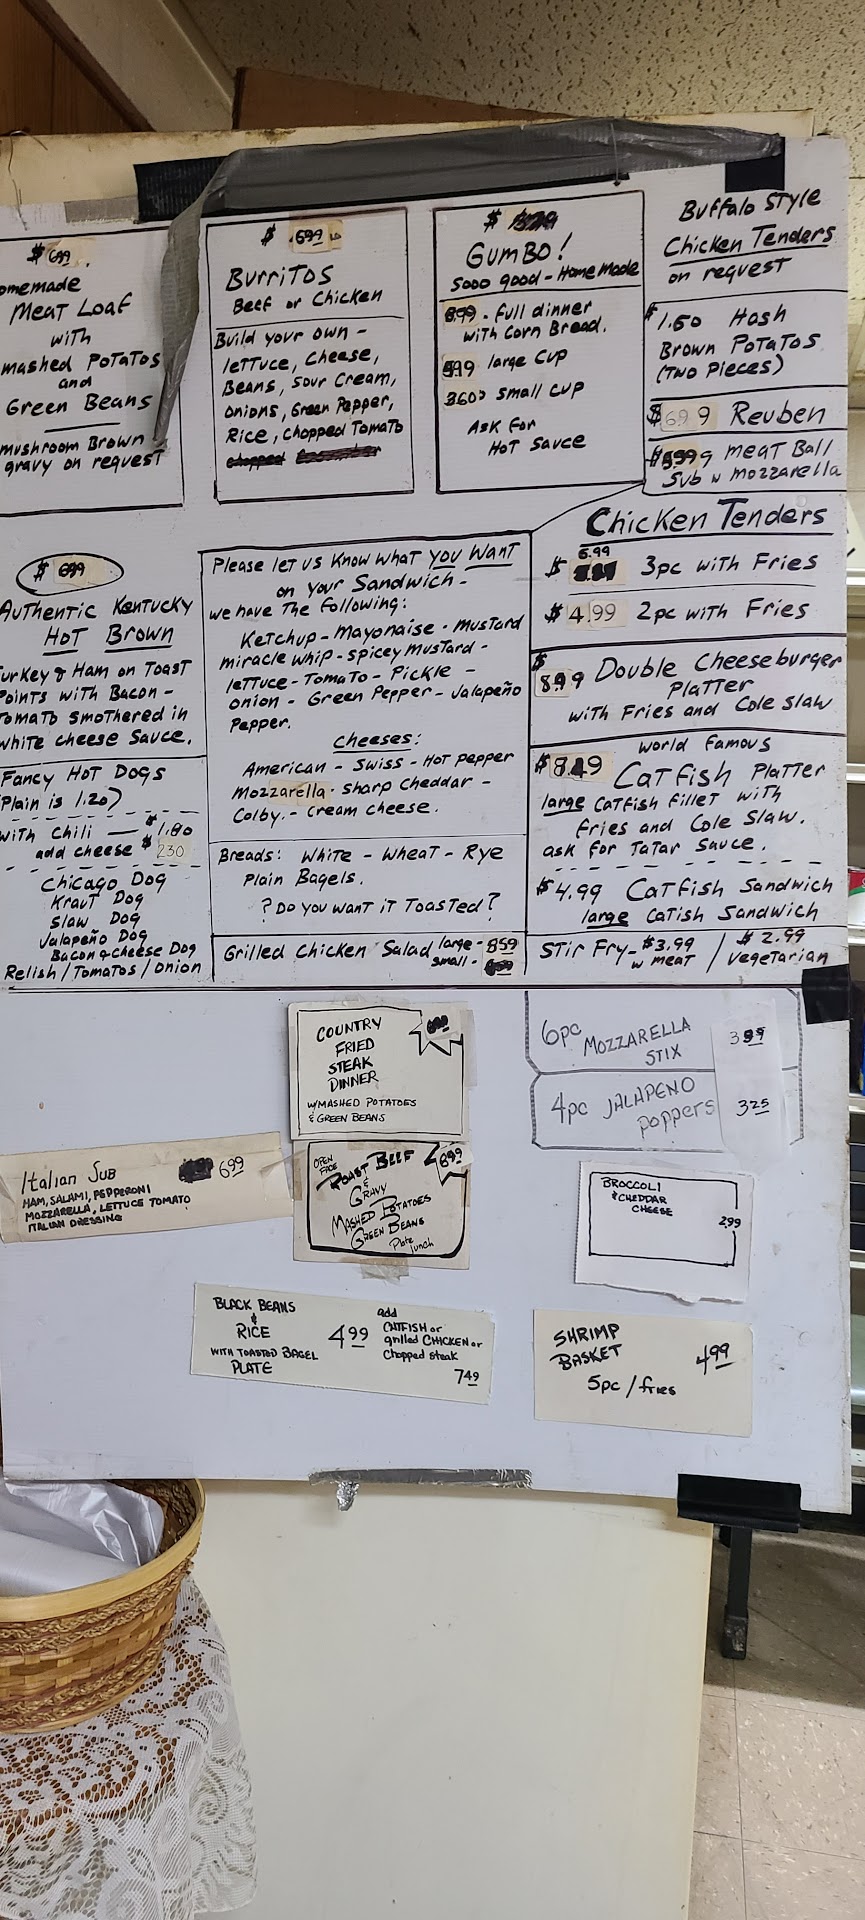 $ 6.99
omemade
Meat Loaf
with
mashed Potatos
and
Green Beans
mushroom Brown
gravy on request
$ 6.99
Burritos
Beef or Chicken
Build your own -
lettuce, Cheese,
Beans, Sour Cream,
onions, Green Pepper,
Rice, Chopped Tomato
chopped
$
GUMBO!
Sooo good - Homemade
8.99 - full dinner
with Corn Bread.
large Cup
3.60 small cup
Ask For
Hot Sauce
Buffalo Style
Chicken Tenders
on request
$1.60 Hash
Brown Potatos
(Two Pieces)
$6.99 Reuben
meat Ball
Sub w mozzarella
$ 6.99
Authentic Kentucky
Hot Brown
urkey & Ham on Toast
Points with Bacon -
Tomato smothered in
white cheese Sauce.
Fancy Hot Dogs
(Plain is 1.20)
with Chili — $1.80
add cheese $ 230
Chicago Dog
Kraut Dog
Slaw Dog
Jalapeño Dog
Bacon & Cheese Dog
Relish / Tomatos / Onion
Please let us know what you want
on your Sandwich -
we have the following:
Ketchup - Mayonaise - Mustard
miracle whip - spicey mustard -
lettuce - Tomato - Pickle -
onion - Green Pepper - Jalapeño
Pepper.
Cheeses:
American - Swiss - Hot pepper
Mozzarella - sharp Cheddar -
Colby - Cream cheese.
Breads: White - Wheat - Rye
Plain Bagels.
? Do you want it Toasted?
Grilled Chicken Salad large - 8.59
small -
Chicken Tenders
$ 6.99 3pc with Fries
$ 4.99 2pc with Fries
$ 8.99 Double Cheeseburger
Platter
with Fries and Cole Slaw
world famous
Catfish Platter
large Catfish fillet with
fries and Cole Slaw.
ask for Tatar Sauce.
$4.99 Catfish Sandwich
large Catish Sandwich
Stir Fry - $3.99 w meat / $2.99 Vegetarian
COUNTRY
FRIED
STEAK
DINNER
W/MASHED POTATOES
& GREEN BEANS
6pc MOZZARELLA
STIX
4pc JALAPENO
poppers
325
Italian Sub 699
HAM, SALAMI, PEPPERONI
MOZZARELLA, LETTUCE TOMATO
ITALIAN DRESSING
OPEN
FACE
ROAST BEEF 899
&
GRAVY
MASHED POTATOES
GREEN BEANS
Plate
lunch
BROCCOLI
& CHEDDAR
CHEESE
299
BLACK BEANS
&
RICE 499
WITH TOASTED BAGEL
PLATE
add
CATFISH or
grilled CHICKEN or
Chopped steak
749
SHRIMP
BASKET 499
5pc / fries